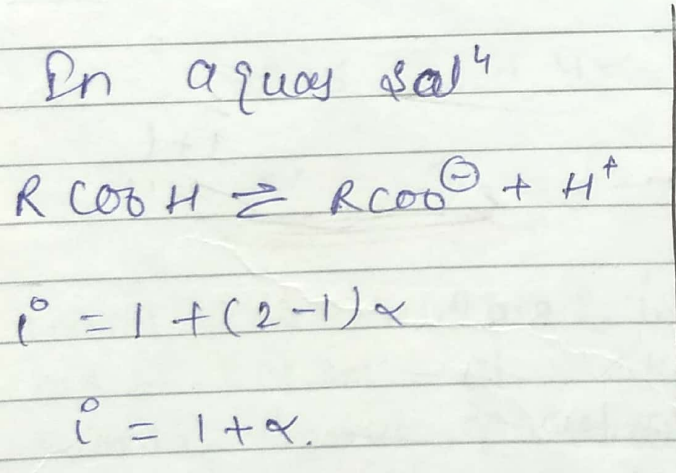 In aquas solⁿ
RCOOH ⇌ RCOO⊖ + H⁺
i = 1 + (2-1)α
i = 1+α.